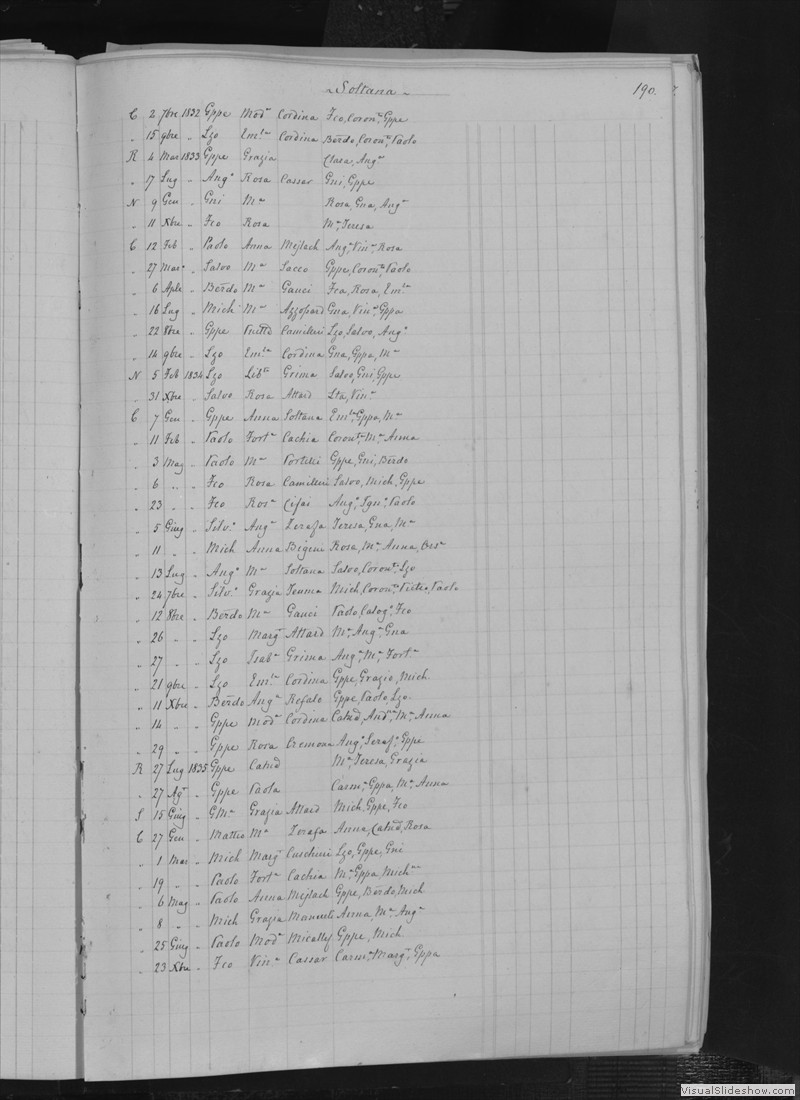 Soltana 190.
C 2 7bre 1832 Gppe Modª Cordina Fco, Coronª, Gppe
" 15 9bre " Lzo Emlª Cordina Berdo, Coronª, Paolo
R 4 Mar 1833 Gppe Grazia Clara, Angª
" 17 Lug " Angº Rosa Cassar Gni, Gppe
N 9 Gen " Gni Mª Rosa, Gna, Angª
" 11 Xbre " Fco Rosa Mª, Teresa
C 12 Feb " Paolo Anna Mejlach Angª, Vinª, Rosa
" 27 Marº " Salvo Mª Sacco Gppe, Coronª, Paolo
" 6 Aple " Berdo Mª Gauci Fca, Rosa, Emlª
" 16 Lug " Mich Mª Azzopard Gna, Vinª, Gppa
" 22 8bre " Gppe Camilleri Lzo, Salvo, Angº
" 14 9bre " Lzo Emlª Cordina Gna, Gppa, Mª
N 5 Feb 1834 Lzo Libª Grima Salvo, Gni, Gppe
" 31 Xbre " Salvo Rosa Attard Lta, Vinª
C 7 Gen " Gppe Anna Soltana Emlª, Gppa, Mª
" 11 Feb " Paolo Fortª Cachia Coronª, Mª, Anna
" 3 Mag " Paolo Mª Portelli Gppe, Gni, Berdo
" 6 " " Fco Rosa Camilleri Salvo, Mich, Gppe
" 23 " " Fco Rosª Cifai Angº, Ignº, Paolo
" 5 Giug " Silvº Angª Zerafa Teresa, Gna, Mª
" 11 " " Mich Anna Bigeni Rosa, Mª, Anna
" 13 Lug " Angº Mª Soltana Salvo, Coronª, Lzo
" 24 7bre " Silvº Grazia Mich, Coronª, Pietro, Paolo
" 12 8bre " Berdo Mª Gauci Paolo, Calogº, Fco
" 26 " " Lzo Margª Attard Mª, Angª, Gna
" 27 " " Lzo Isabª Grima Angª, Mª, Fortª
" 21 9bre " Lzo Emlª Cordina Gppe, Grazio, Mich
" 11 Xbre " Berdo Angª Refalo Gppe, Paolo, Lzo
" 14 " " Gppe Modª Cordina Catnd, Andnª, Mª, Anna
" 29 " " Gppe Rosa Cremona Angº, Serafº, Gppe
R 27 Lug 1835 Gppe Catnd Mª, Teresa, Grazia
" 27 Agº " Gppe Paola Carmª, Gppa, Mª, Anna
S 15 Giug " GMª Grazia Attard Mich, Gppe, Fco
C 27 Gen " Matteo Mª Zerafa Anna, Catnd, Rosa
" 1 Mar " Mich Margª Cuschieri Lzo, Gppe, Gni
" 19 " " Paolo Fortª Cachia Mª, Gppa, Michnª
" 6 Mag " Paolo Anna Mejlach Gppe, Berdo, Mich
" 8 " " Mich Grazia Anna, Mª, Angª
" 25 Giug " Paolo Modª Micallef Gppe, Mich
" 23 Xbre " Fco Vinª Cassar Carmª, Margª, Gppa
VisualSlideshow.com